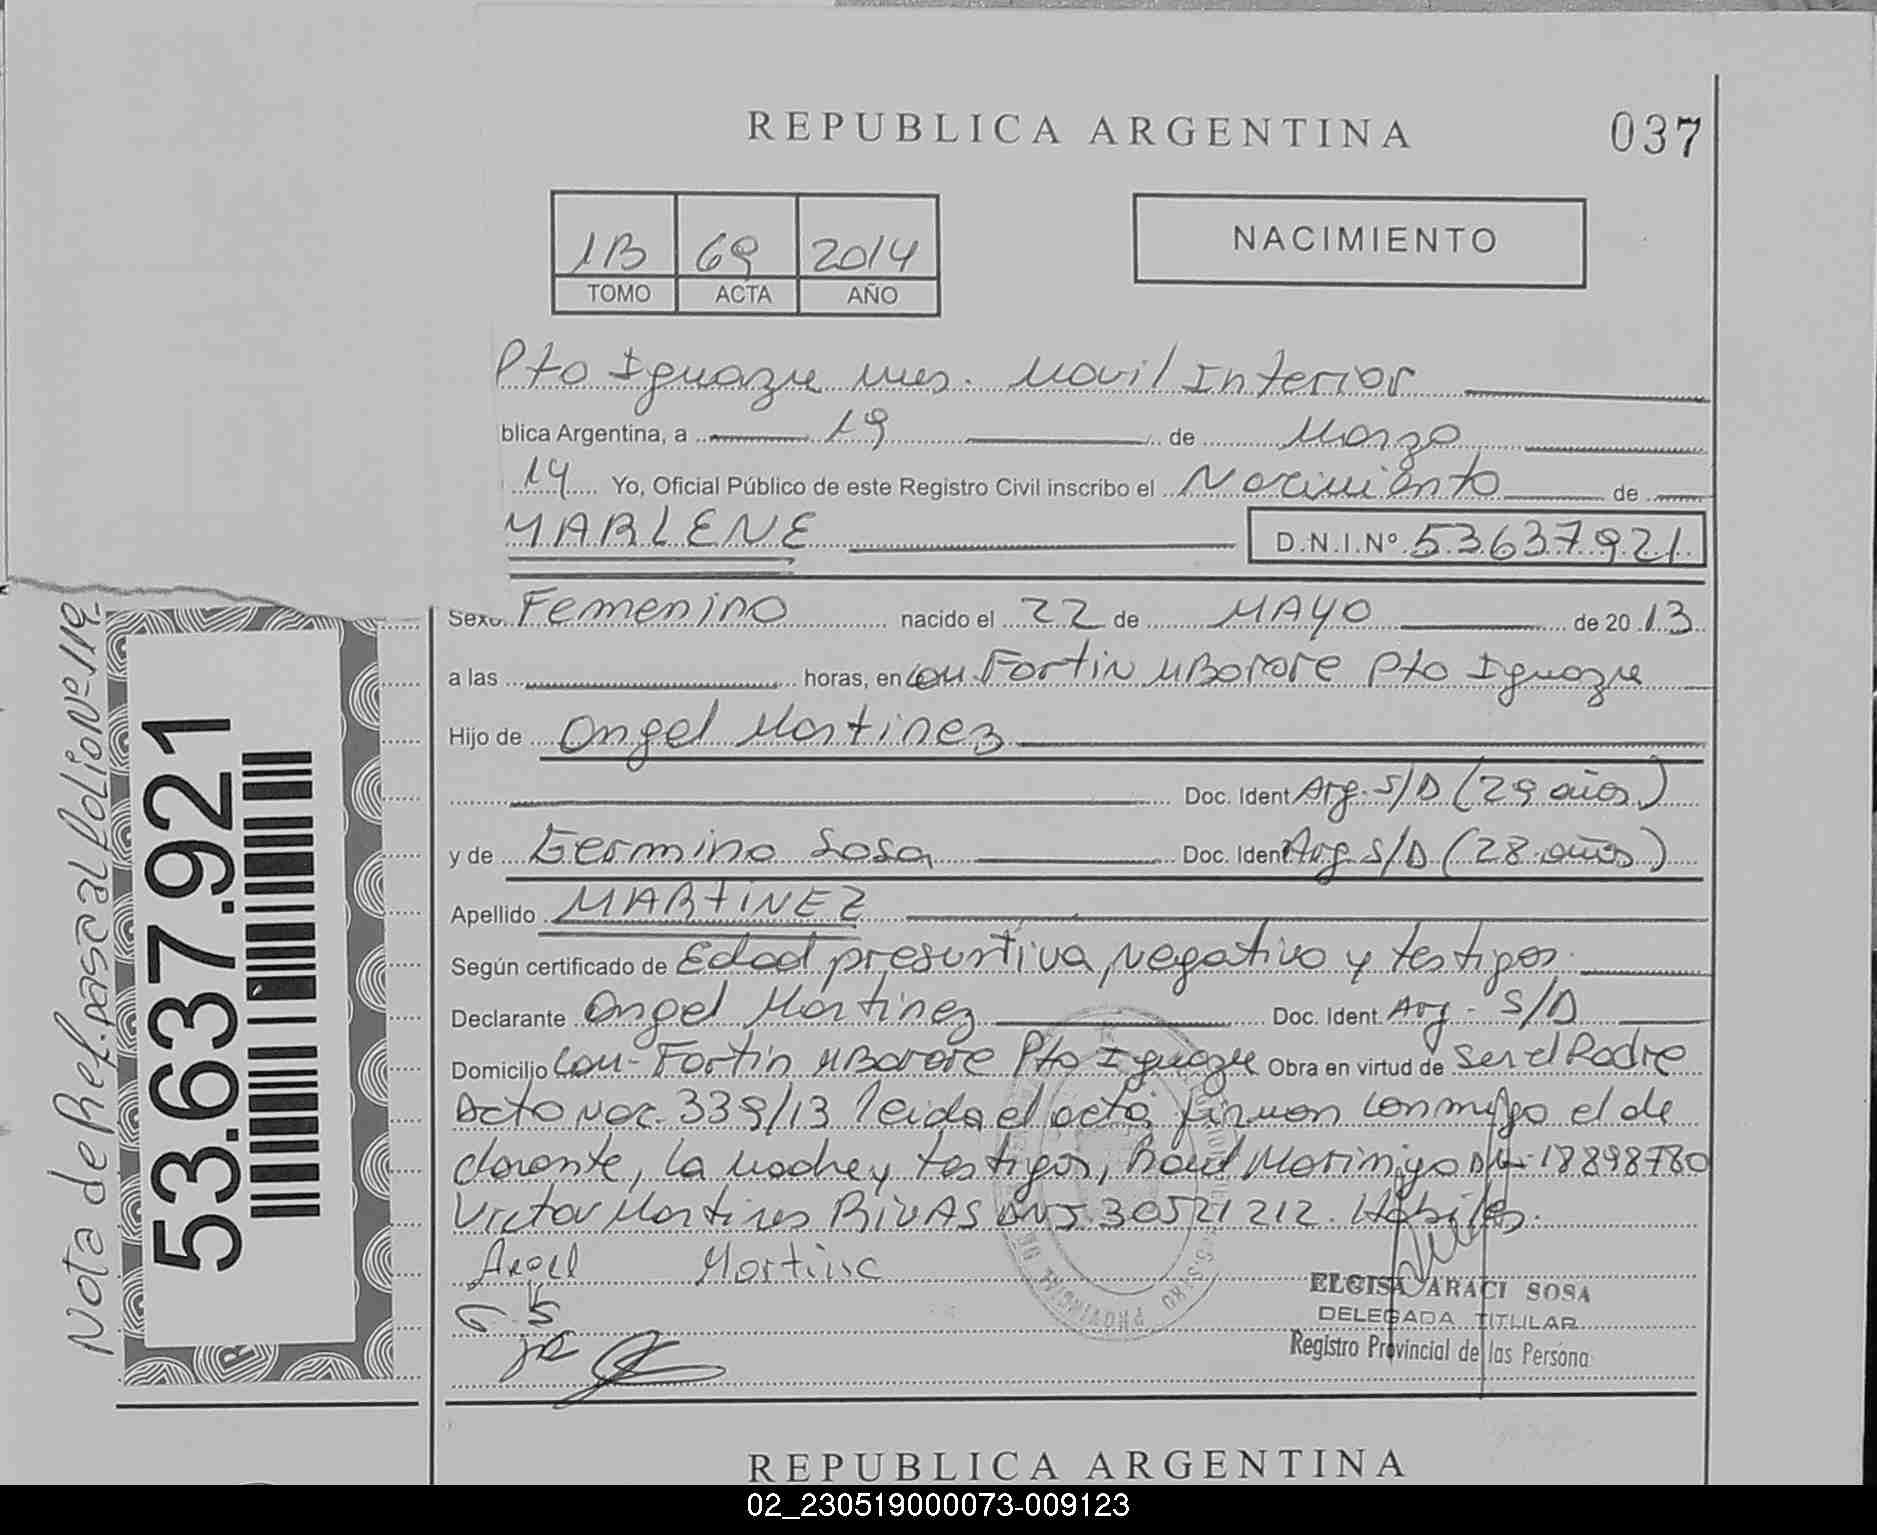 REPUBLICA ARGENTINA
037
1B 69 2014
TOMO ACTA AÑO
NACIMIENTO
Pto Iguazu Mes. Movil Interior
blica Argentina, a 19 de Marzo
14 Yo, Oficial Público de este Registro Civil inscribo el Nacimiento de
MARLENE D.N.I.Nº 53637921
Sexo Femenino nacido el 22 de MAYO de 20 13
a las horas, en Com Fortin MBORORE Pto Iguazu
Hijo de Angel Martinez
Doc. Ident Arg. S/D (29 años)
y de Germina Sosa Doc. Ident Arg S/D (28 años)
Apellido MARTINEZ
Según certificado de Edad presuntiva, negativo y testigos.
Declarante Angel Martinez Doc. Ident. Arg - S/D
Domicilio Com - Fortin MBORORE Pto Iguazu Obra en virtud de ser el Padre
Acto Nac. 339/13 leida el acta, firman conmigo el de
clarante, la Madre y testigos, Raul Morinigo DNI 18898780
Victor Martines RIVAS DNI 30521212. Habiles.
Angel Martinc
G. S
ELCISA ARACI SOSA
DELEGADA TITULAR
Registro Provincial de las Persona
REPUBLICA ARGENTINA
Nota de Ref. pase al Folio Nº 119
53.637.921
02_230519000073-009123